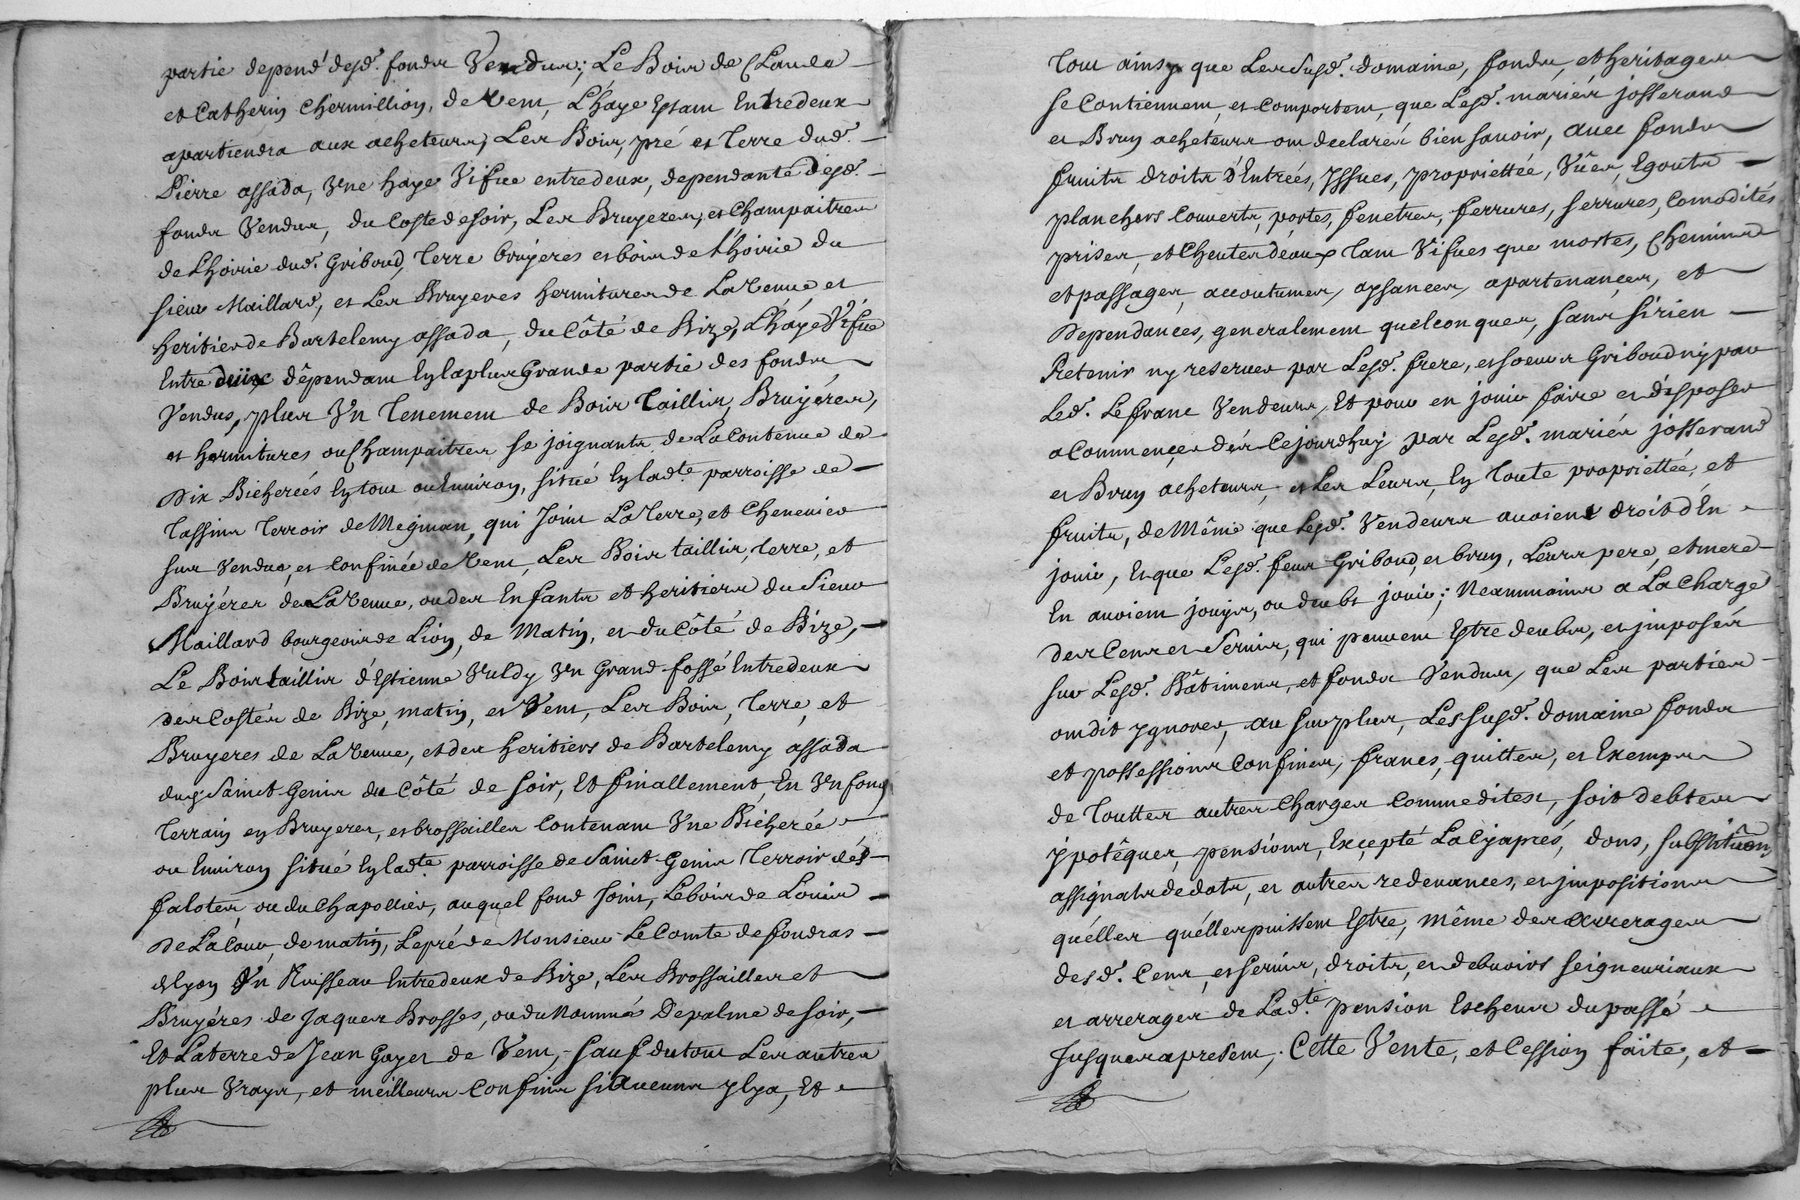 partie depend.' desd.^s fonds Vendus; Le Bois de Claude
et Catherin Chermillion, de Vent, L'haye Estant Entredeux
apartiendra aux acheteurs, Les Bois, pré et Terre dud.^t
Pierre assada, Vne haye Vifue entredeux, dependante desd.^s
fonds Vendus, du Coste de soir, Les Bruyeres, et Champaitres
de Lhoirie dud.^t Griboud, Terre bruyeres et bois de l'hoirie du
sieur Maillard, et Les Bruyeres hermitures de La Veuue et
heritiers de Bartelemy assada, du Côté de Bize, L'haye Vifue
Entre deüx dêpendant En la plus Grande partie des fonds
Vendus, plus Vn Tenement de Bois Taillis, Bruyéres,
et hermitures ou Champaitres se joignants de La Contenue de
Dix Bicherées En tout ou Enuiron, situé En lad.^te parroisse de
Tassins Terroir de Megnan, qui Joint La Terre, et Cheneuier
sus Vendus, et Confinée de Vent, Les Bois taillis, Terre, et
Bruyéres de La Veuue, ou des Enfants et heritiers du Sieur
Maillard bourgeois de Lion, de Matin, et du Côté de Bize,
Le Bois taillis d'Estienne Vuldy Vn Grand fossé Entredeux
des Costés de Bize, matin, et Vent, Les Bois, Terre, et
Bruyeres de La Veuue, et des heritiers de Bartelemy assada
dud. Sainct Genis du Côté de soir, Et finallement, En Vn fond
Terrain en Bruyeres, et brossailles Contenant Vne Bicherée
ou Enuiron situé En lad.^te parroisse de Sainct Genis Terroir des
falotes, ou du Chapollier, auquel fond Joint, Le bois de Louis
De La Cour, de matin, Le pré de Monsieur Le Comte de fondras
Vn Ruisseau Entredeux de Bize, Les Brossailles et
Bruyéres de Jaques Brosses, ou du Nommé Depalme de soir,
Et La terre de Jean Goyet de Vent, sauf du tout Les autres
plus Vrays, et meilleurs Confins si Aucuns y a, Et
Tout ainsy que Les susd.^s domaine, fonds, et heritages
se Contiennent, et Comportent, que Lesd.^s mariés josserand
et Brun acheteurs ont declarés bien sauoir, auec fonds
fruits droits d'Entrées, Issues, propriettée, Vuës, Egouts
planchers Couverts, portes, fenetres, ferrures, serrures, Comodités
prises, et Cheutes d'eaux Tant Vifues que mortes, Chemins
et passages, accoutumes, aysances, apartenances, et
Dependances, generalement quelconques, sans si rien
Retenir ny reseruer par Lesd.^s frere, et soeurs Griboud ny par
Led.^t Lefranc Vendeurs, Et pour en jouir faire et disposer
a Commencer dés Cejourdhuy par Lesd.^s mariés josserand
et Brun acheteurs, et Les Leurs, En Toute propriettée, et
fruits, de Même que Lesd.^s Vendeurs auoient droit d'En
jouir, Et que Lesd.^s feus Griboud, et brun, Leurs pere, et mere
En auoient jouys, ou deubt jouir; Neanmoins a La Charge
des Cens et Seruis, qui peuuent Estre deubs, et imposés
sur Lesd.^s Bâtiments, et fonds Vendus, que Les parties
ont dit ygnorer, au surplus, Les susd.^s domaine fonds
et possessions Confinés, francs, quittes, et Exempts
de Touttes autres Charges Commedites, soit debtes
ypotêques, pensions, Excepté La Cyaprés, dons, substitûons
assignats de dots, et autres redeuances, et impositions
qu'élles qu'élles puissent Estre, même des arrerages
desd.^s Cens, et seruis, droits, et debuoirs seigneuriaux
et arrerages de Lad.^te pension Escheus du passé
Jusques apresent, Cette Vente, et Cession faite, et